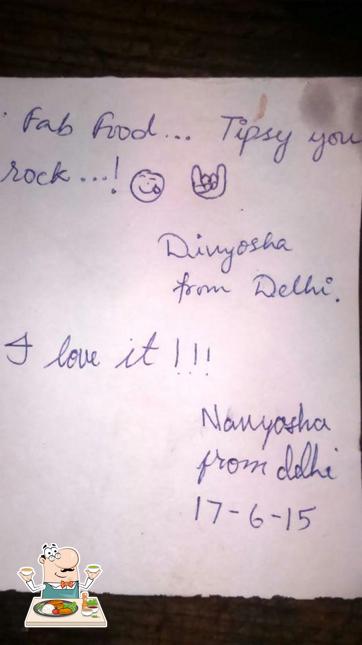 Fab Food... Tipsy you
rock...!
Divyosha
from Delhi.
I love it !!!
Navyosha
from delhi
17-6-15